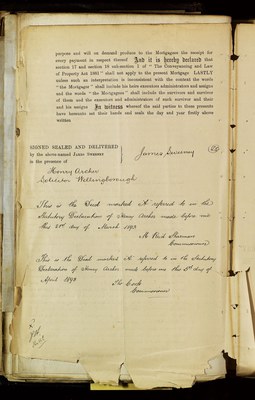 purpose and will on demand produce to the Mortgagees the receipt for
every payment in respect thereof And it is hereby declared that
section 17 and section 18 sub-section 1 of "The Conveyancing and Law
of Property Act 1881" shall not apply to the present Mortgage LASTLY
unless such an interpretation is inconsistent with the context the words
"the Mortgagor" shall include his heirs executors administrators and assigns
and the words "the Mortgagees" shall include the survivors and survivor
of them and the executors and administrators of such survivor and their
and his assigns In witness whereof the said parties to these presents
have hereunto set their hands and seals the day and year firstly above
written
SIGNED SEALED AND DELIVERED
by the above-named JAMES
in the presence of
James
Henry Archer
Solicitor Wellingborough
This is the Deed marked A referred to in the
Statutory Declaration of Henry Archer made before me
this day of March 1893
Commissioner
This is the Deed marked A referred to in the Statutory
Declaration of Henry Archer made before me this 5th day of
April 1893
Cook
Commissioner